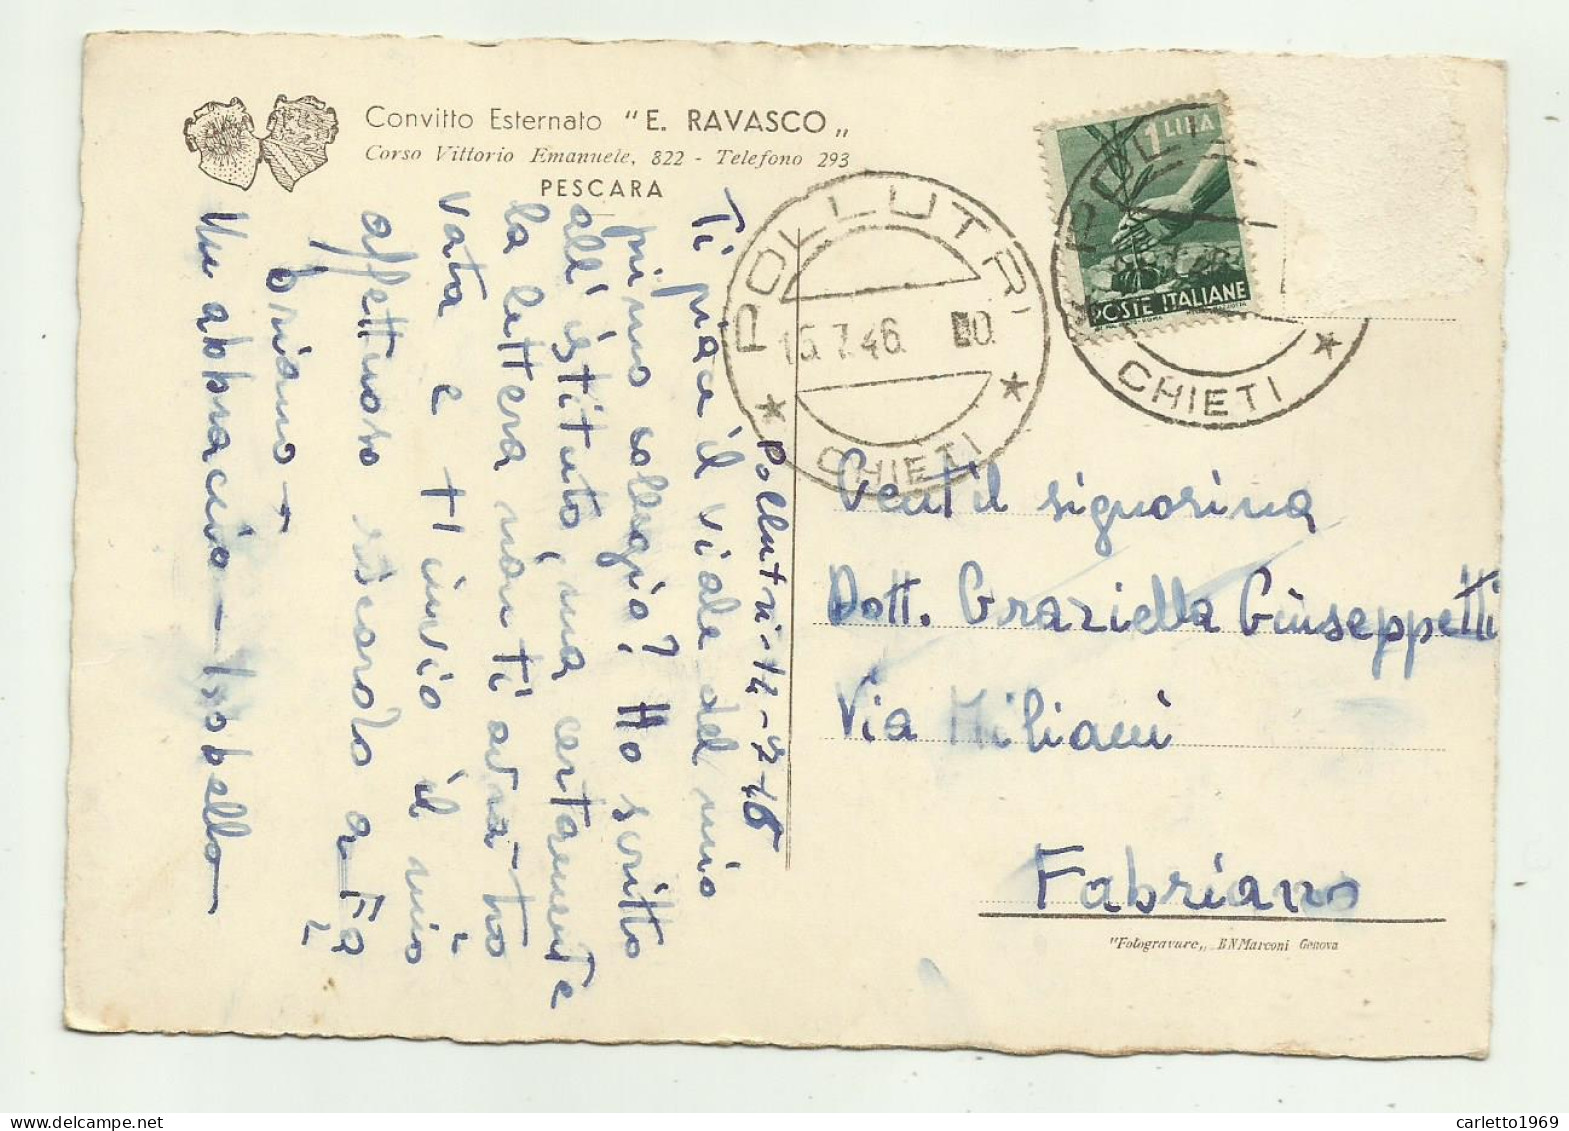 Convitto Esternato "E. RAVASCO„
Corso Vittorio Emanuele, 822 - Telefono 293
PESCARA
Pollutri - 14-7-46
Ti piace il viale del mio
primo collegio? Ho scritto
all'istituto, ma certamente
la lettera non ti avrà tro
vata e ti invio il mio
affettuoso ricordo a Fa
briano -
Un abbraccio - Isabella
POLLUTRI
15.7.46. 20
CHIETI
1 LIRA
POSTE ITALIANE
POLLUTRI
CHIETI
Gent'il signorina
Dott. Graziella Giuseppetti
Via Miliani
Fabriano
"Fotogravure„ BNMarconi Genova
carletto1969